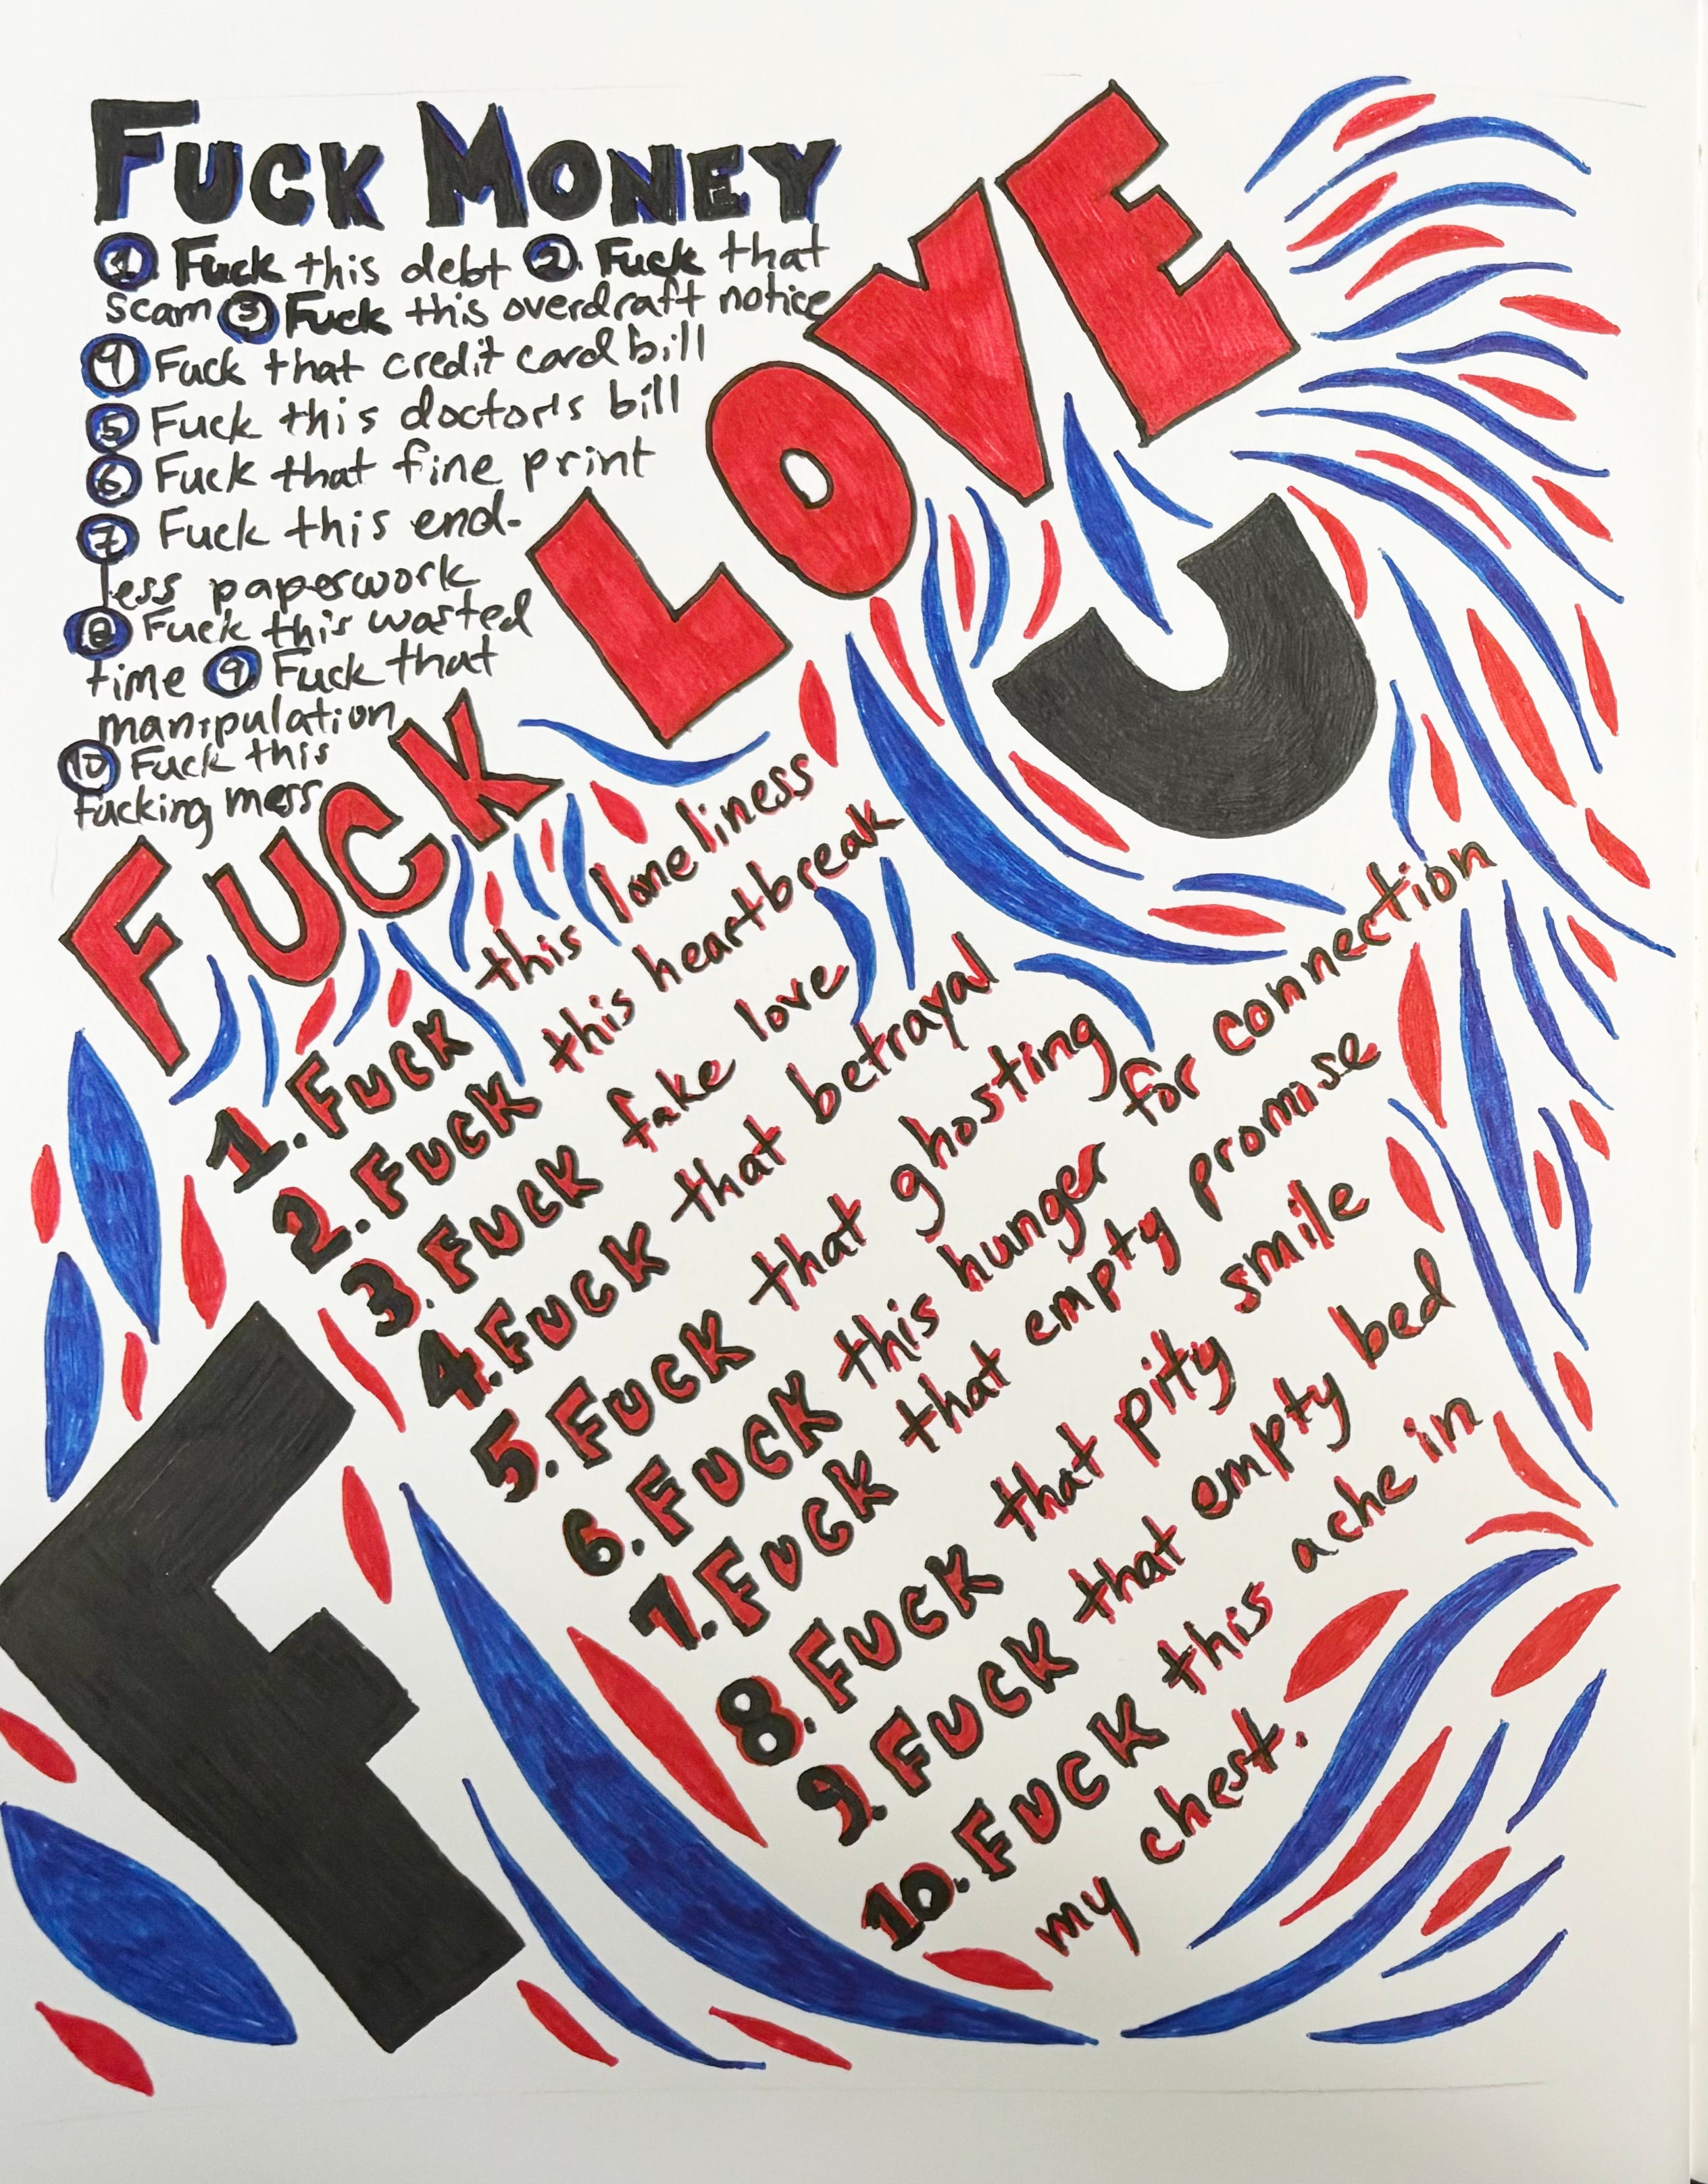 FUCK MONEY
1. Fuck this debt 2. Fuck that
scam 3 Fuck this overdraft notice
4 Fuck that credit card bill
5 Fuck this doctor's bill
6 Fuck that fine print
7 Fuck this end-
less paperwork
8 Fuck this wasted
time 9 Fuck that
manipulation
10 Fuck this
fucking mess
FUCK LOVE
1. FUCK this loneliness
2. FUCK this heartbreak
3. FUCK fake love
4. FUCK that betrayal
5. FUCK that ghosting
6. FUCK this hunger for connection
7. FUCK that empty promise
8. FUCK that pity smile
9. FUCK that empty bed
10. FUCK this ache in
my chest.
F U